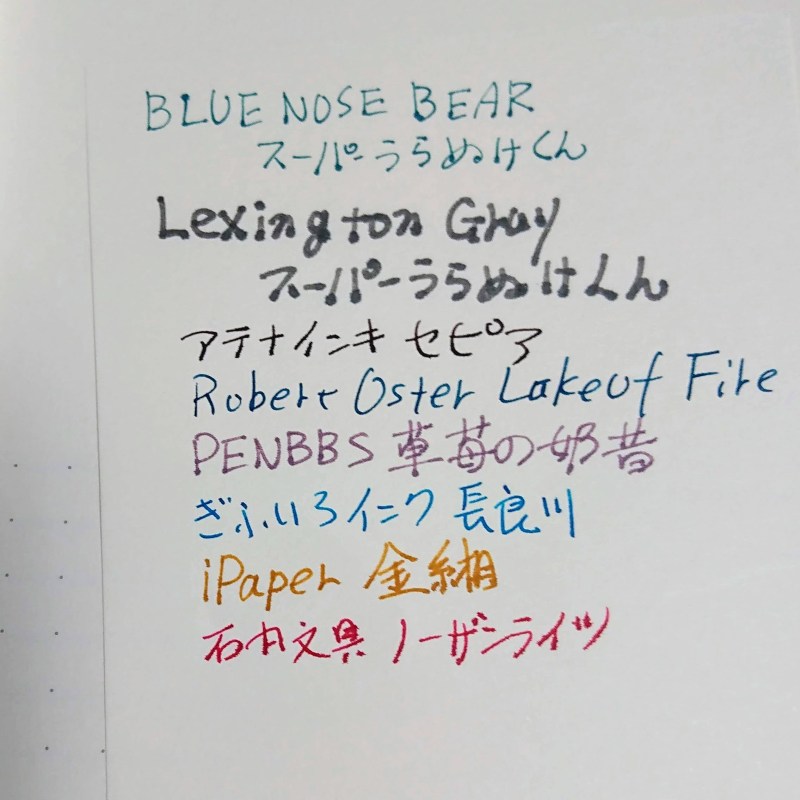 BLUE NOSE BEAR
スーパーうらぬけくん
Lexington Gray
スーパーうらぬけくん
アテナインキ セピア
Robert Oster Lake of Fire
PENBBS 草苺の奶昔
ぎふいろインク 長良川
iPaper 金緗
石内文具 ノーザンライツ